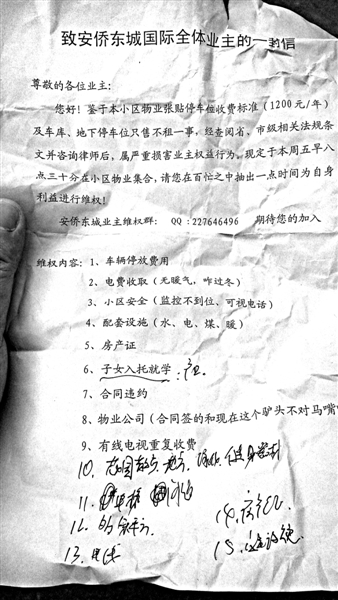 致安侨东城国际全体业主的一封信
尊敬的各位业主:
您好! 鉴于本小区物业张贴停车位收费标准(1200元/年)
及车库、地下停车位只售不租一事,经查阅省、市级相关法规条
文并咨询律师后,属严重损害业主权益行为。现定于本周五早八
点三十分在小区物业集合,请您在百忙之中抽出一点时间为自身
利益进行维权!
安侨东城业主维权群: QQ:227646496 期待您的加入
维权内容: 1、车辆停放费用
2、电费收取(无暖气,咋过冬)
3、小区安全(监控不到位、可视电话)
4、配套设施(水、电、煤、暖)
5、房产证
6、子女入托就学:
7、合同违约
8、物业公司(合同签的和现在这个驴头不对马嘴
9、有线电视重复收费
10.
11.
12.
13.
14.
15.